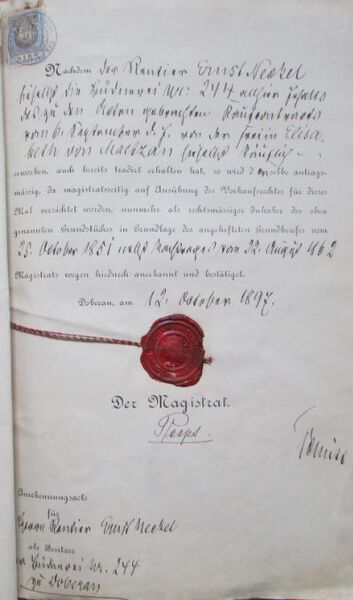 Nachdem der Rentier Ernst Neckel
hieselbst die Büdnerei Nr: 244 allhier Inhalts
des zu den Acten gebrachten Kaufcontracts
vom 6. September d. J. von der Freiin Elisa-
beth von Maltzan hieselbst käuflich
erworben, auch bereits tradirt erhalten hat, so wird derselbe antrags-
mässig, da magistratsseitig auf Ausübung des Vorkaufsrechtes für dieses
Mal verzichtet worden, nunmehr als rechtsmässiger Inhaber des oben
genannten Grundstückes in Grundlage des angehefteten Grundbriefes vom
25. October 1851 nebst Nachtrages vom 22. August 1862
Magistrats wegen hiedurch anerkannt und bestätiget.
Doberan, am 12. October 1897.
Der Magistrat.
Anerkennungsacte
für
Herrn Rentier Ernst Neckel
als Besitzer
der Büdnerei Nr. 244
zu Doberan